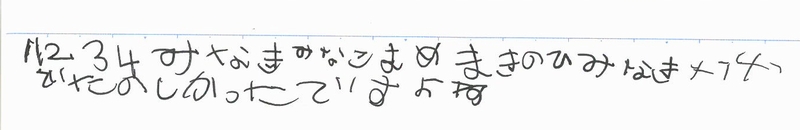 1234みなきみなこまめまきのひみなき
でたのしかったですよね